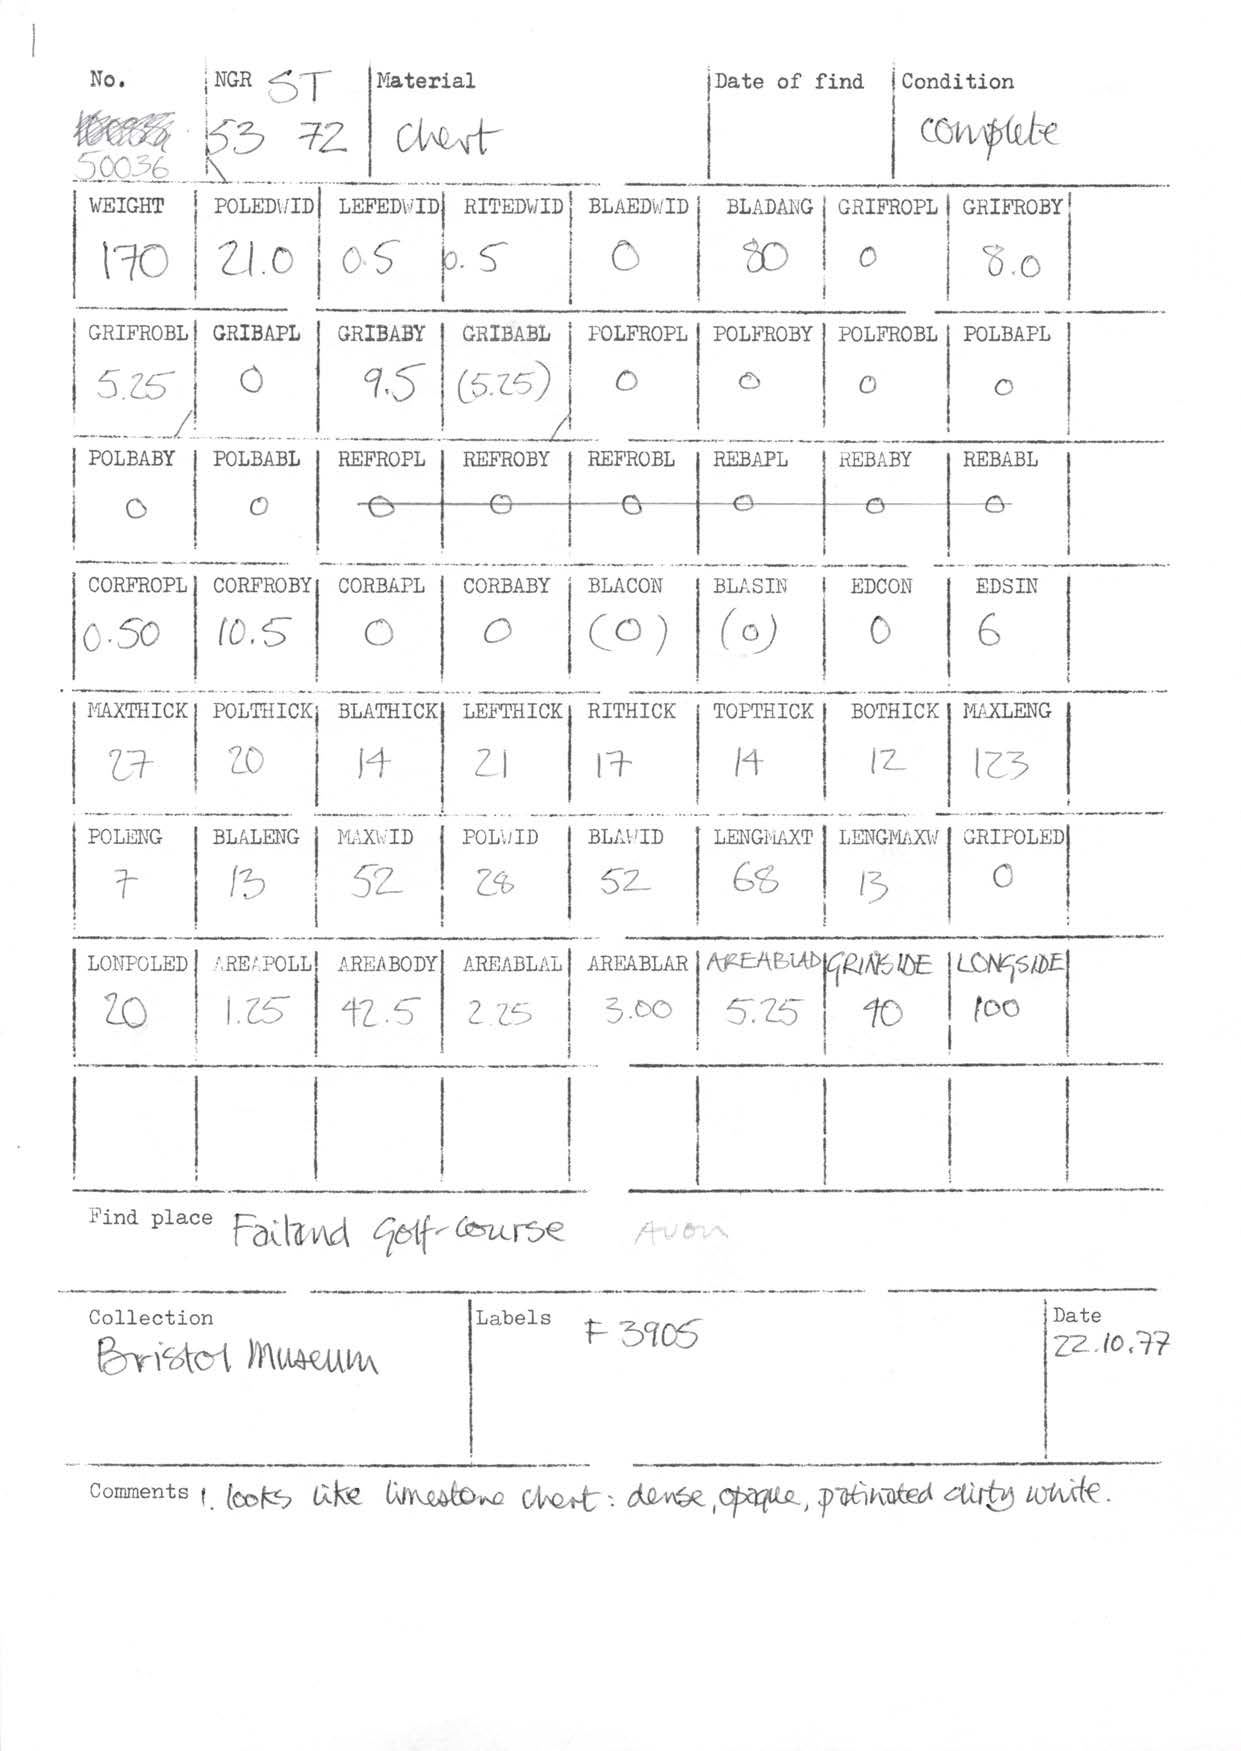 No. NGR ST Material Date of find Condition
53 72 chert complete
50036
WEIGHT POLEDWID LEFEDWID RITEDWID BLAEDWID BLADANG GRIFROPL GRIFROBY
170 21.0 0.5 0.5 0 80 0 8.0
GRIFROBL GRIBAPL GRIBABY GRIBABL POLFROPL POLFROBY POLFROBL POLBAPL
5.25 0 9.5 (5.25) 0 0 0 0
POLBABY POLBABL REFROPL REFROBY REFROBL REBAPL REBABY REBABL
0 0 0 0 0 0 0 0
CORFROPL CORFROBY CORBAPL CORBABY BLACON BLASIN EDCON EDSIN
0.50 10.5 0 0 (0) (0) 0 6
MAXTHICK POLTHICK BLATHICK LEFTHICK RITHICK TOPTHICK BOTHICK MAXLENG
27 20 14 21 17 14 12 123
POLENG BLALENG MAXWID POLWID BLAWID LENGMAXT LENGMAXW GRIPOLED
7 13 52 28 52 68 13 0
LONPOLED AREAPOLL AREABODY AREABLAL AREABLAR AREABLAD GRINSIDE LONGSIDE
20 1.25 42.5 2.25 3.00 5.25 40 100
Find place Failand Golf-course Avon
Collection Labels F 3905 Date
Bristol Museum 22.10.77
Comments 1. looks like limestone chert: dense, opaque, patinated dirty white.